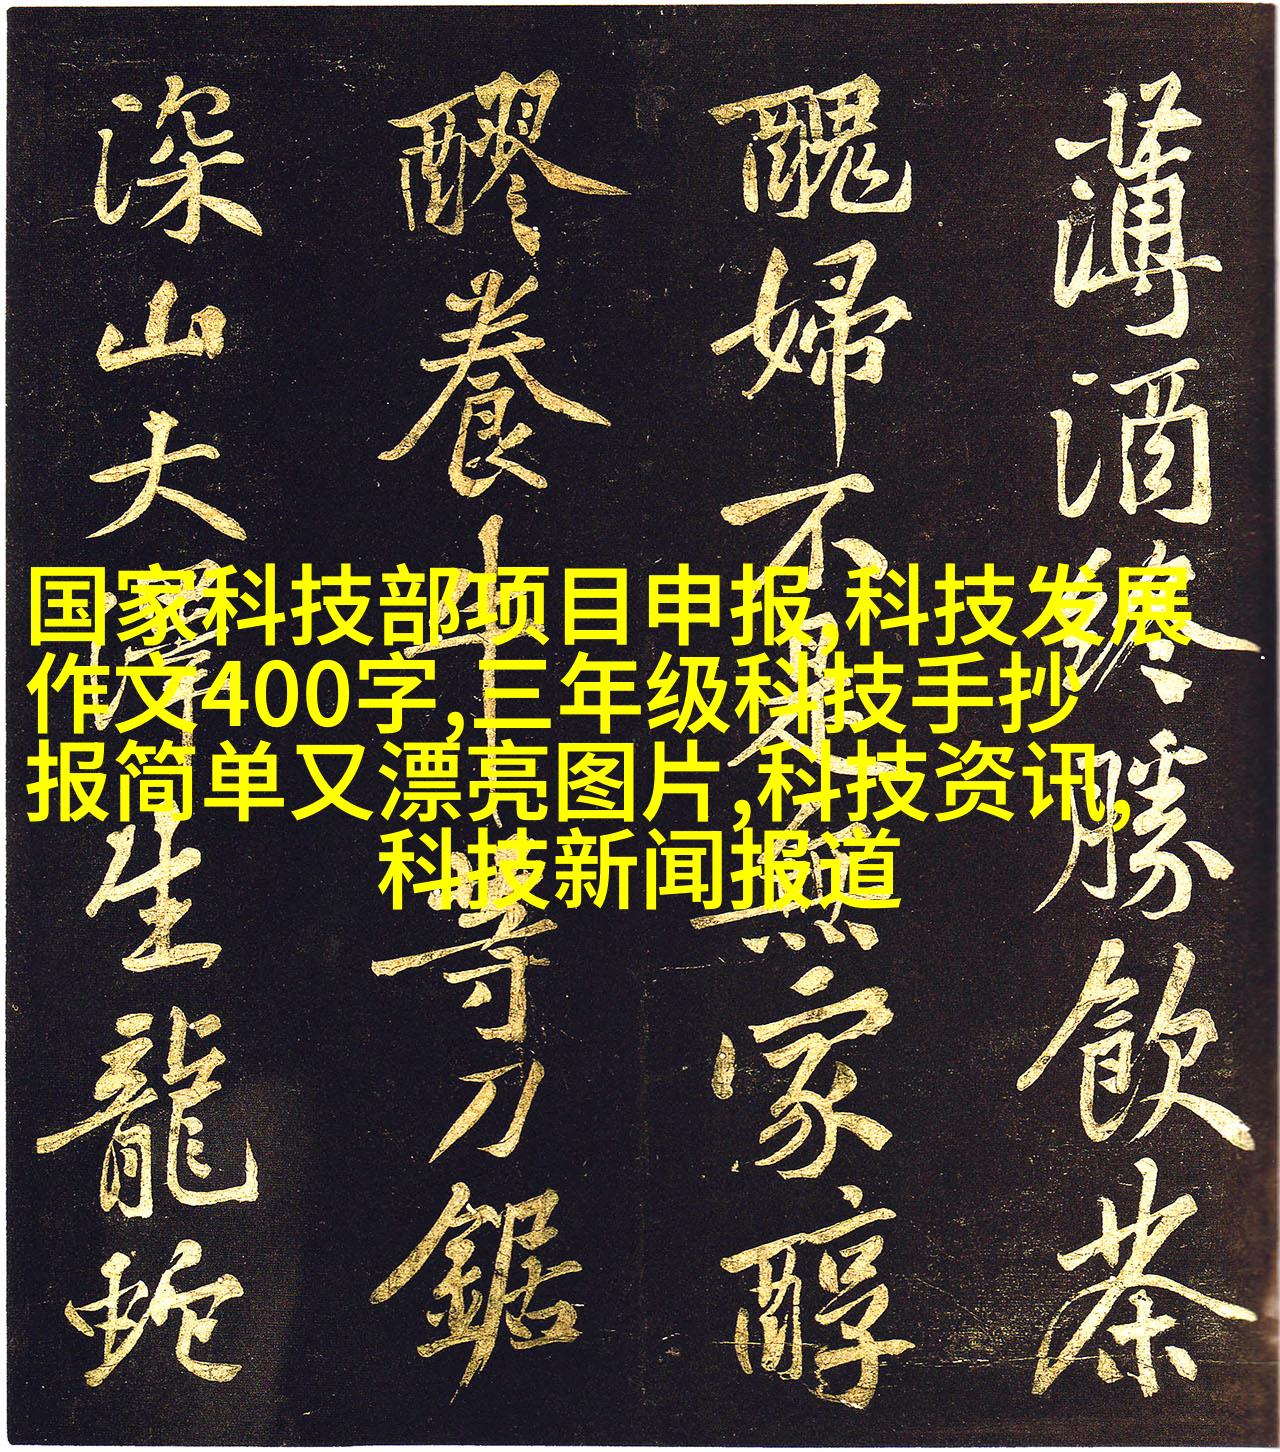 薄酒終勝飲茶
醜婦不是無家醇
醪養牛等刀鋸
深山大澤生龍蛇
国家科技部项目申报,科技发展
作文400字,三年级科技手抄
报简单又漂亮图片,科技资讯,
科技新闻报道